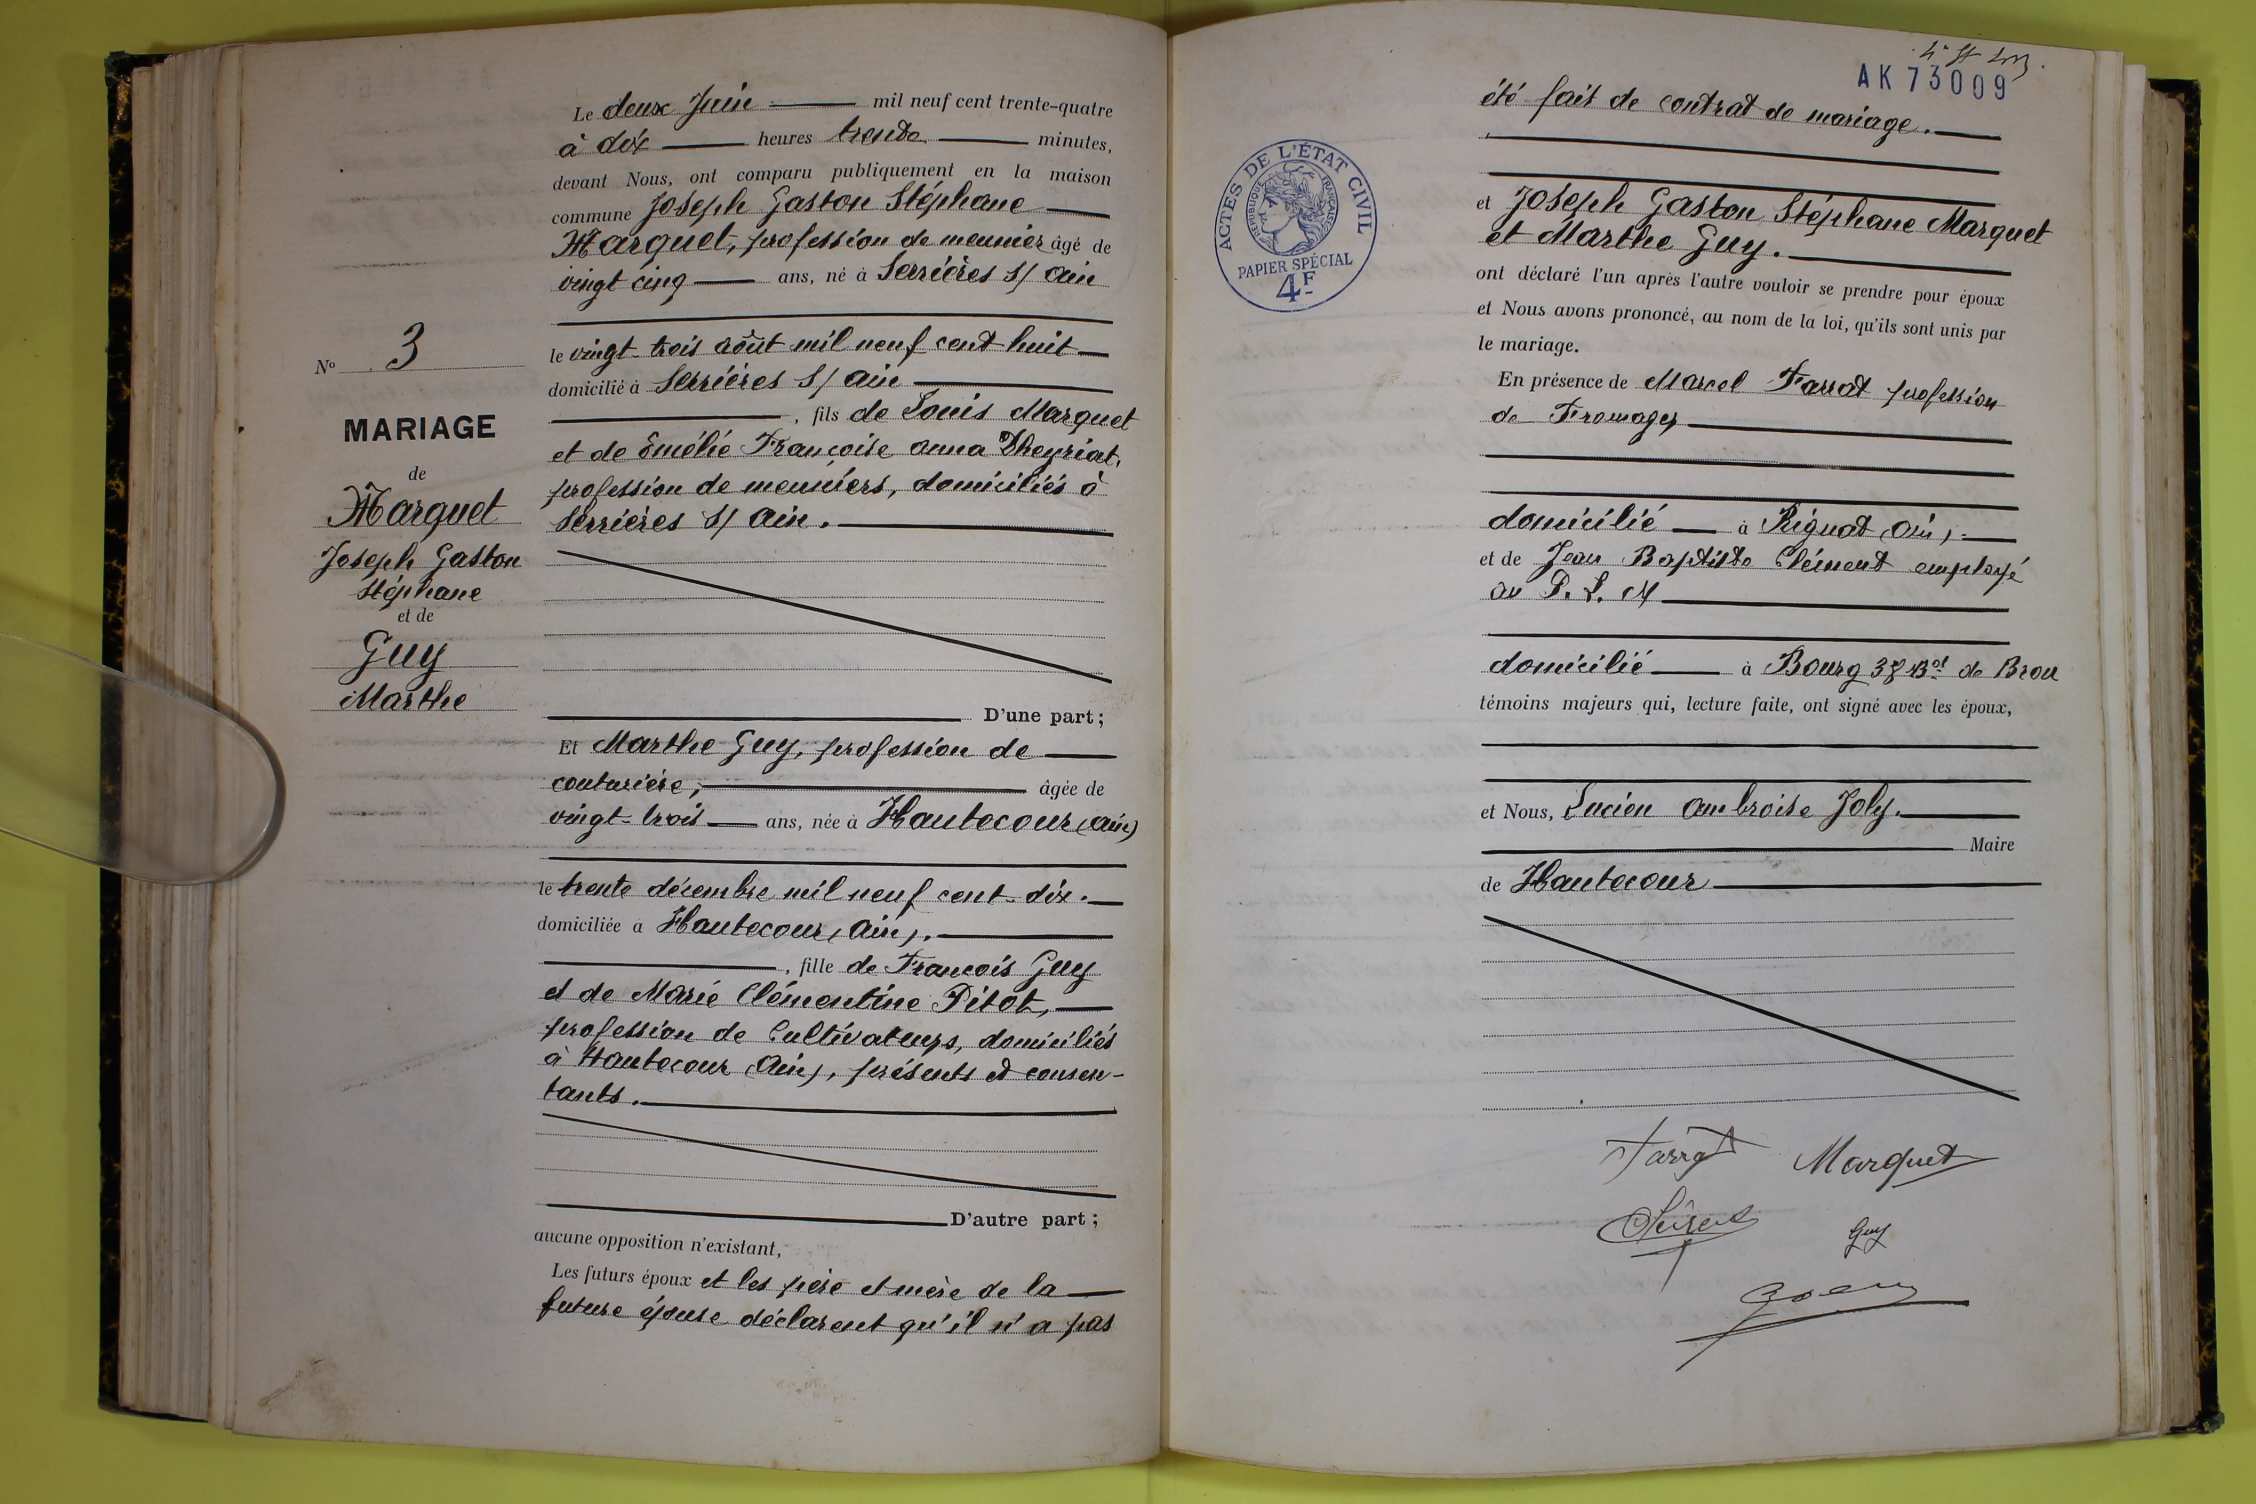 Le deux Juin mil neuf cent trente-quatre
à dix heures trente minutes,
devant Nous, ont comparu publiquement en la maison
commune Joseph Gaston Stéphane
Marquet, profession de meunier âgé de
vingt cinq ans, né à Serrières s/ Ain
le vingt-trois août mil neuf cent huit
domicilié à Serrières s/ Ain
, fils de Louis Marquet
et de Emélie Françoise Anna Theyriat,
profession de meuniers, domiciliés à
Serrières s/ Ain.
D'une part;
Et Marthe Guy, profession de
couturière, âgée de
vingt-trois ans, née à Hautecour (Ain)
le trente décembre mil neuf cent-dix.
domiciliée à Hautecour (Ain).
, fille de François Guy
et de Marie Clémentine Pitot,
profession de Cultivateurs, domiciliés
à Hautecour (Ain), présents et consen-
tants.
D'autre part;
aucune opposition n'existant,
Les futurs époux et les père et mère de la
future épouse déclarent qu'il n'a pas
No 3
MARIAGE
de
Marquet
Joseph Gaston
Stéphane
et de
Guy
Marthe
AK 73009
été fait de contrat de mariage.
ACTES DE L'ÉTAT CIVIL
RÉPUBLIQUE FRANÇAISE
PAPIER SPÉCIAL
4F
et Joseph Gaston Stéphane Marquet
et Marthe Guy.
ont déclaré l'un après l'autre vouloir se prendre pour époux
et Nous avons prononcé, au nom de la loi, qu'ils sont unis par
le mariage.
En présence de Marcel Farrat profession
de Fromager
domicilié à Rignat (Ain).
et de Jean Baptiste Clément employé
au P. L. M
domicilié à Bourg 38 Bd de Brou
témoins majeurs qui, lecture faite, ont signé avec les époux,
et Nous, Lucien Ambroise Joly.
Maire
de Hautecour
Farrat Marquet
Guy